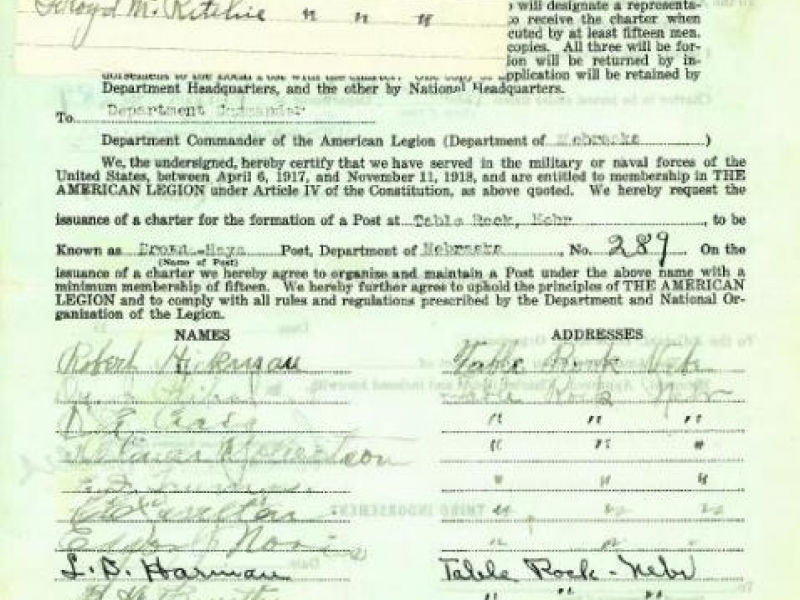 Lloyd M. Ritchie " " "
will designate a representa-
to receive the charter when
cuted by at least fifteen men.
copies. All three will be for-
ion will be returned by in-
dorsement to the Local Post with the charter. One copy of application will be retained by
Department Headquarters, and the other by National Headquarters.
To Department Commander
Department Commander of the American Legion (Department of Nebraska )
We, the undersigned, hereby certify that we have served in the military or naval forces of the
United States, between April 6, 1917, and November 11, 1918, and are entitled to membership in THE
AMERICAN LEGION under Article IV of the Constitution, as above quoted. We hereby request the
issuance of a charter for the formation of a Post at Table Rock, Nebr , to be
Known as Brown-Hays Post, Department of Nebraska , No. 289 On the
(Name of Post)
issuance of a charter we hereby agree to organize and maintain a Post under the above name with a
minimum membership of fifteen. We hereby further agree to uphold the principles of THE AMERICAN
LEGION and to comply with all rules and regulations prescribed by the Department and National Or-
ganisation of the Legion.
NAMES ADDRESSES
Robert Hickman Table Rock Neb
Table Rock Nebr
" " "
Robertson " " "
" " "
" " "
" " "
L. D. Harman Table Rock - Nebr
" " "